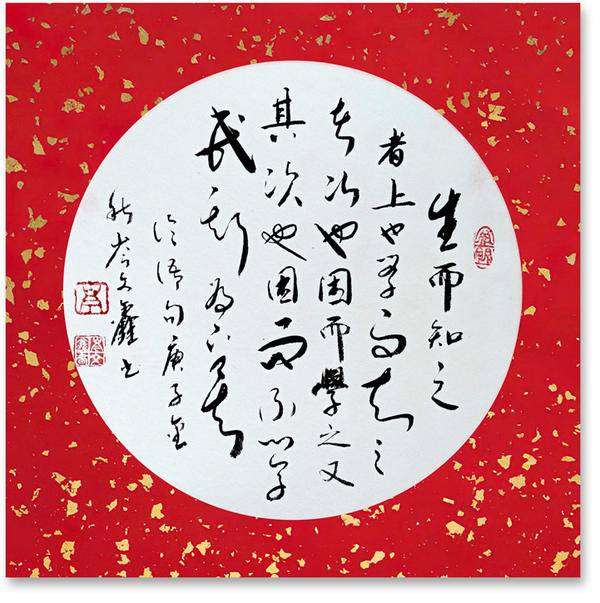 生而知之
者上也学而知之
者次也困而學之又
其次也困而不学
民斯为下矣
论语句庚子金
秋文书